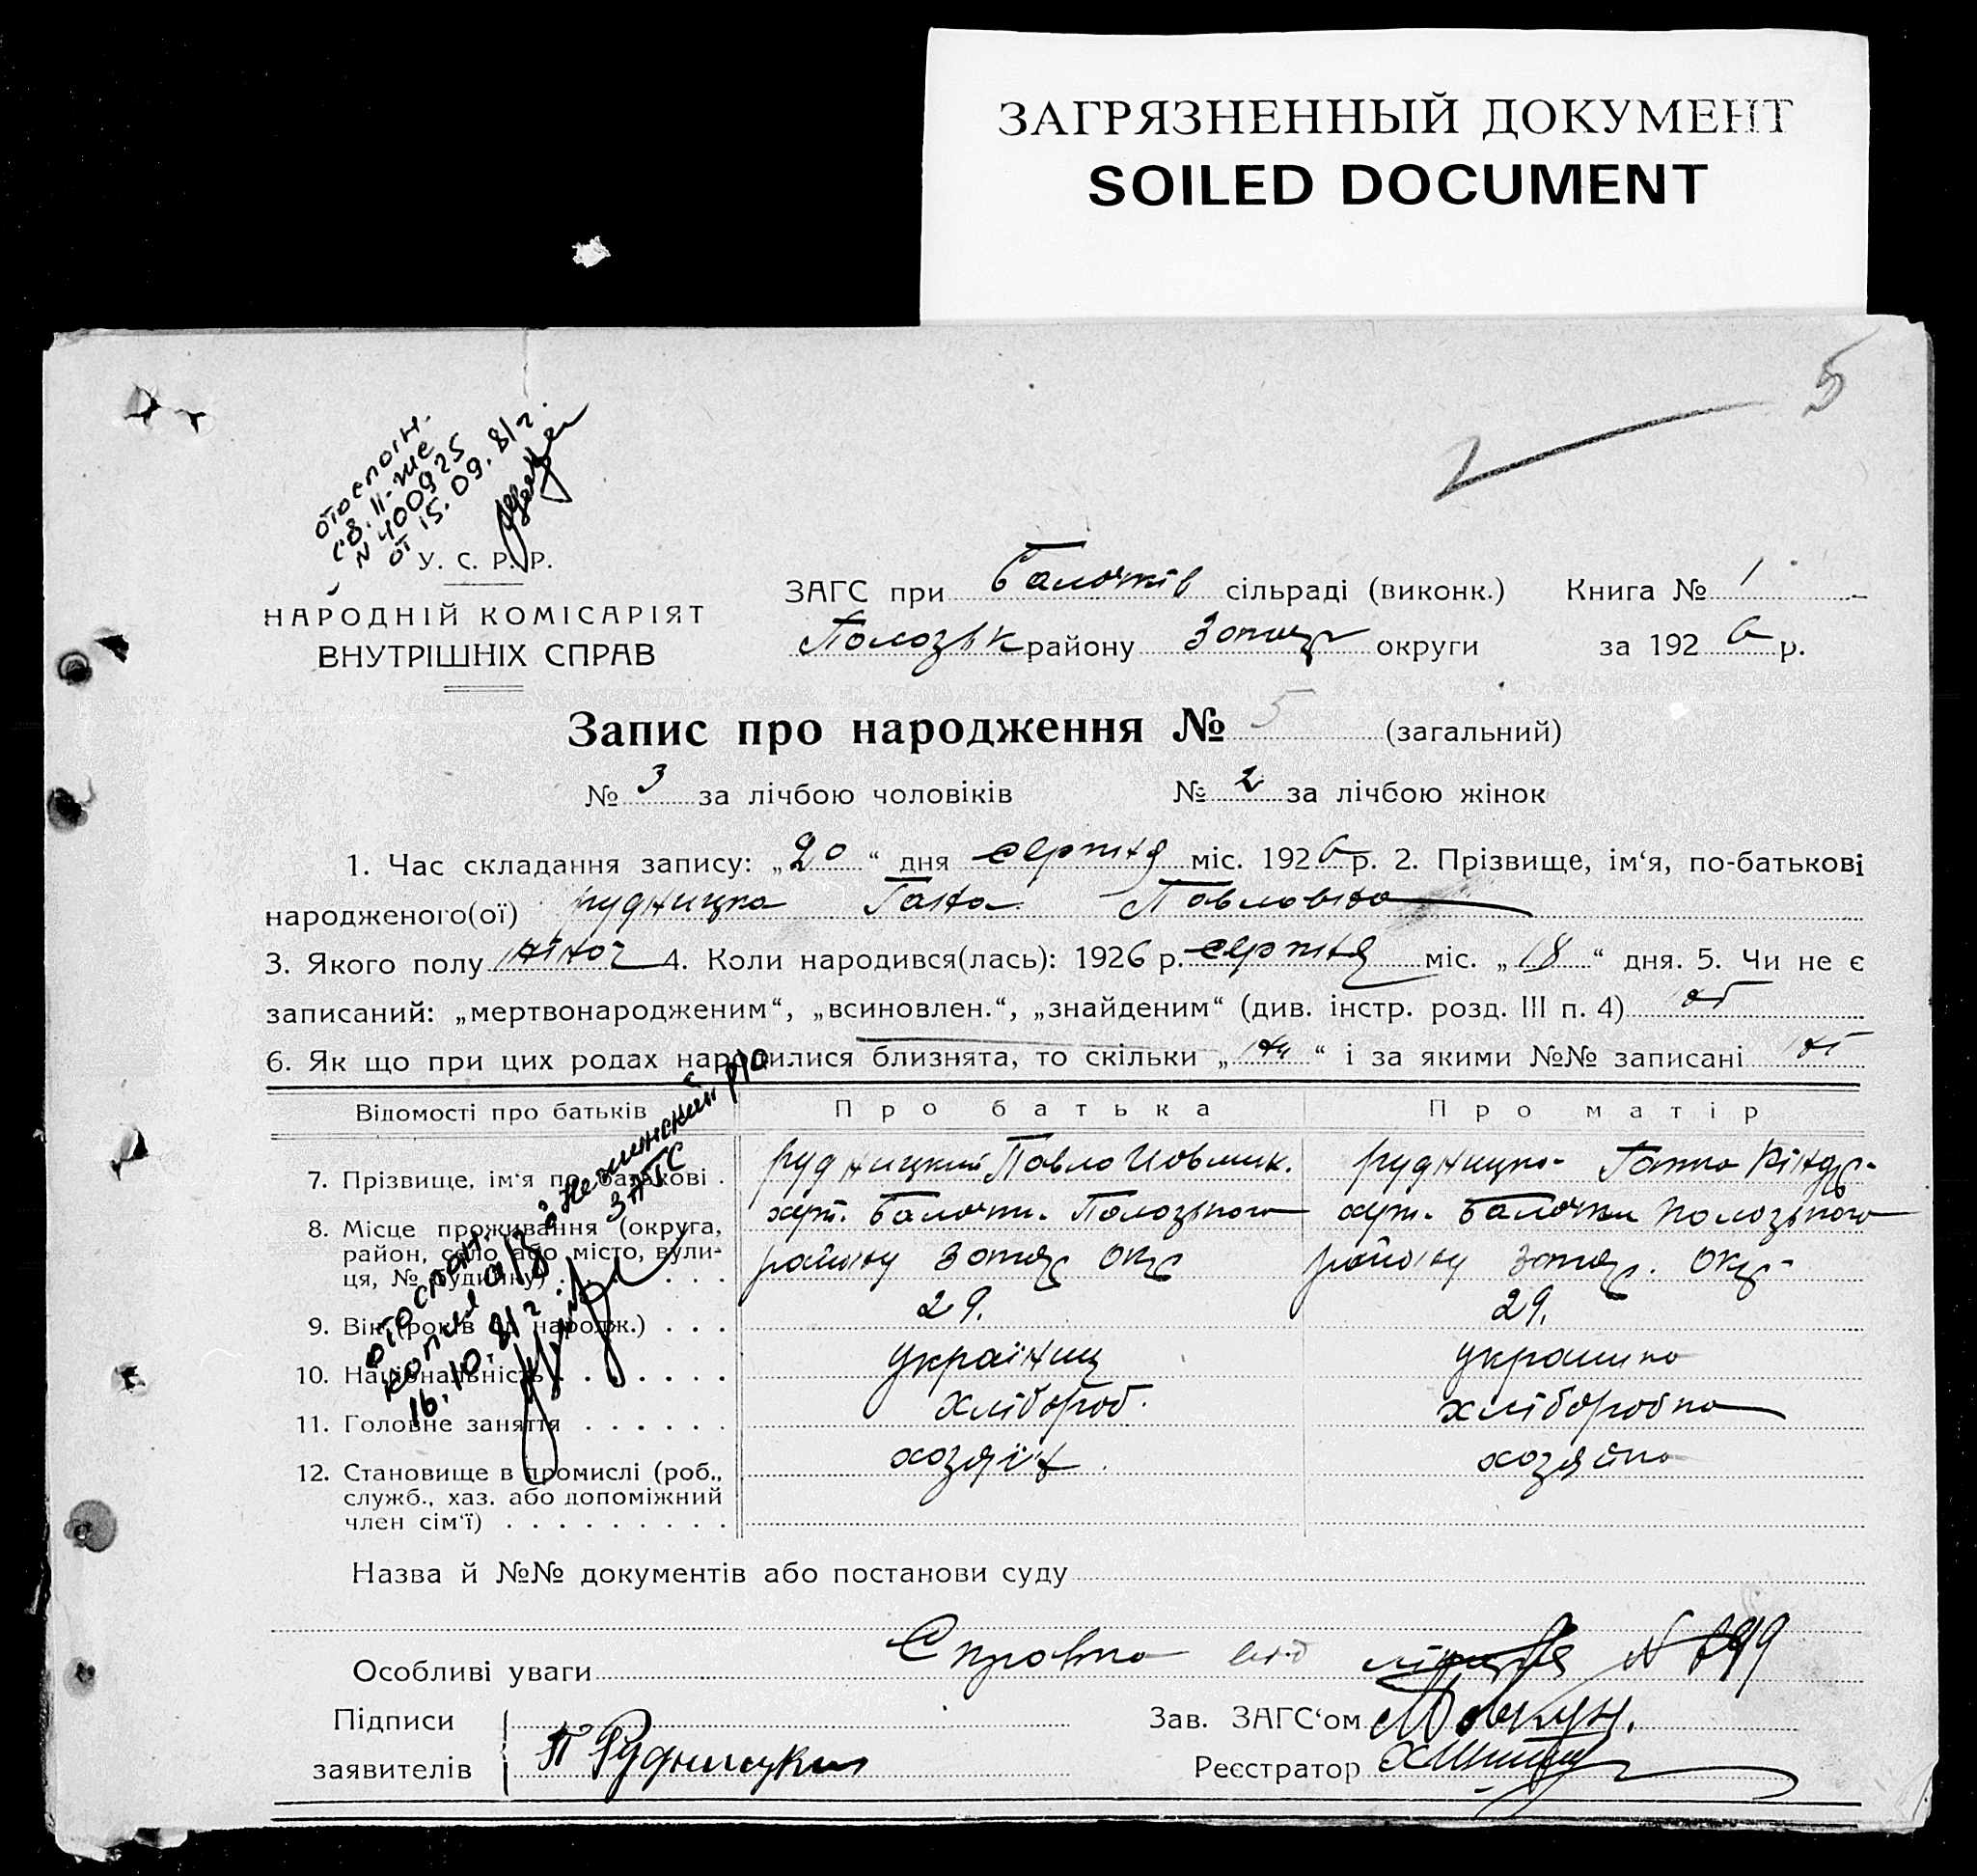 ЗАГРЯЗНЕННЫЙ ДОКУМЕНТ
SOILED DOCUMENT
5
св. II-ние
N 400925
от 15.09.81г.
У. С. Р. Р.
НАРОДНІЙ КОМІСАРІЯТ
ВНУТРІШНІХ СПРАВ
ЗАГС при Балочків сільраді (виконк.) Книга № 1
Полозьк району округи за 1926 р.
Запис про народження № 5 (загальний)
№ 3 за лічбою чоловіків № 2 за лічбою жінок
1. Час складання запису: „20“ дня серпня міс. 1926 р. 2. Прізвище, ім‘я, по-батькові
народженого(ої) Рудницка Ганна Павловна
3. Якого полу жіноч 4. Коли народився(лась): 1926 р. серпня міс. „18“ дня. 5. Чи не є
записаний: „мертвонародженим“, „всиновлен.“, „знайденим“ (див. інстр. розд. III п. 4) ні
6. Як що при цих родах народилися близнята, то скільки „ “ і за якими №№ записані ні
Відомості про батьків Про батька Про матір
7. Прізвище, ім‘я по батькові . Рудницкий Павло Рудницка Ганна
8. Місце проживання (округа, хут. Балочки. Полозького хут. Балочки Полозького
район, село або місто, вули- району окр району окр
ця, № будинку) . . . .
9. Вік (років від народж.) . . . 29. 29.
10. Національність . . . . . . . українец украинка
11. Головне заняття . . . . . . хлібороб. хліборобка
12. Становище в промислі (роб., хозяїн хозяйка
служб., хаз. або допоміжний
член сім‘ї) . . . . . . . . .
копия а/з в Нежинский р/о
16.10.81г. ЗАГС
Назва й №№ документів або постанови суду
Особливі уваги Справка від N
Підписи Зав. ЗАГС‘ом
заявителів П Рудницкий Реєстратор